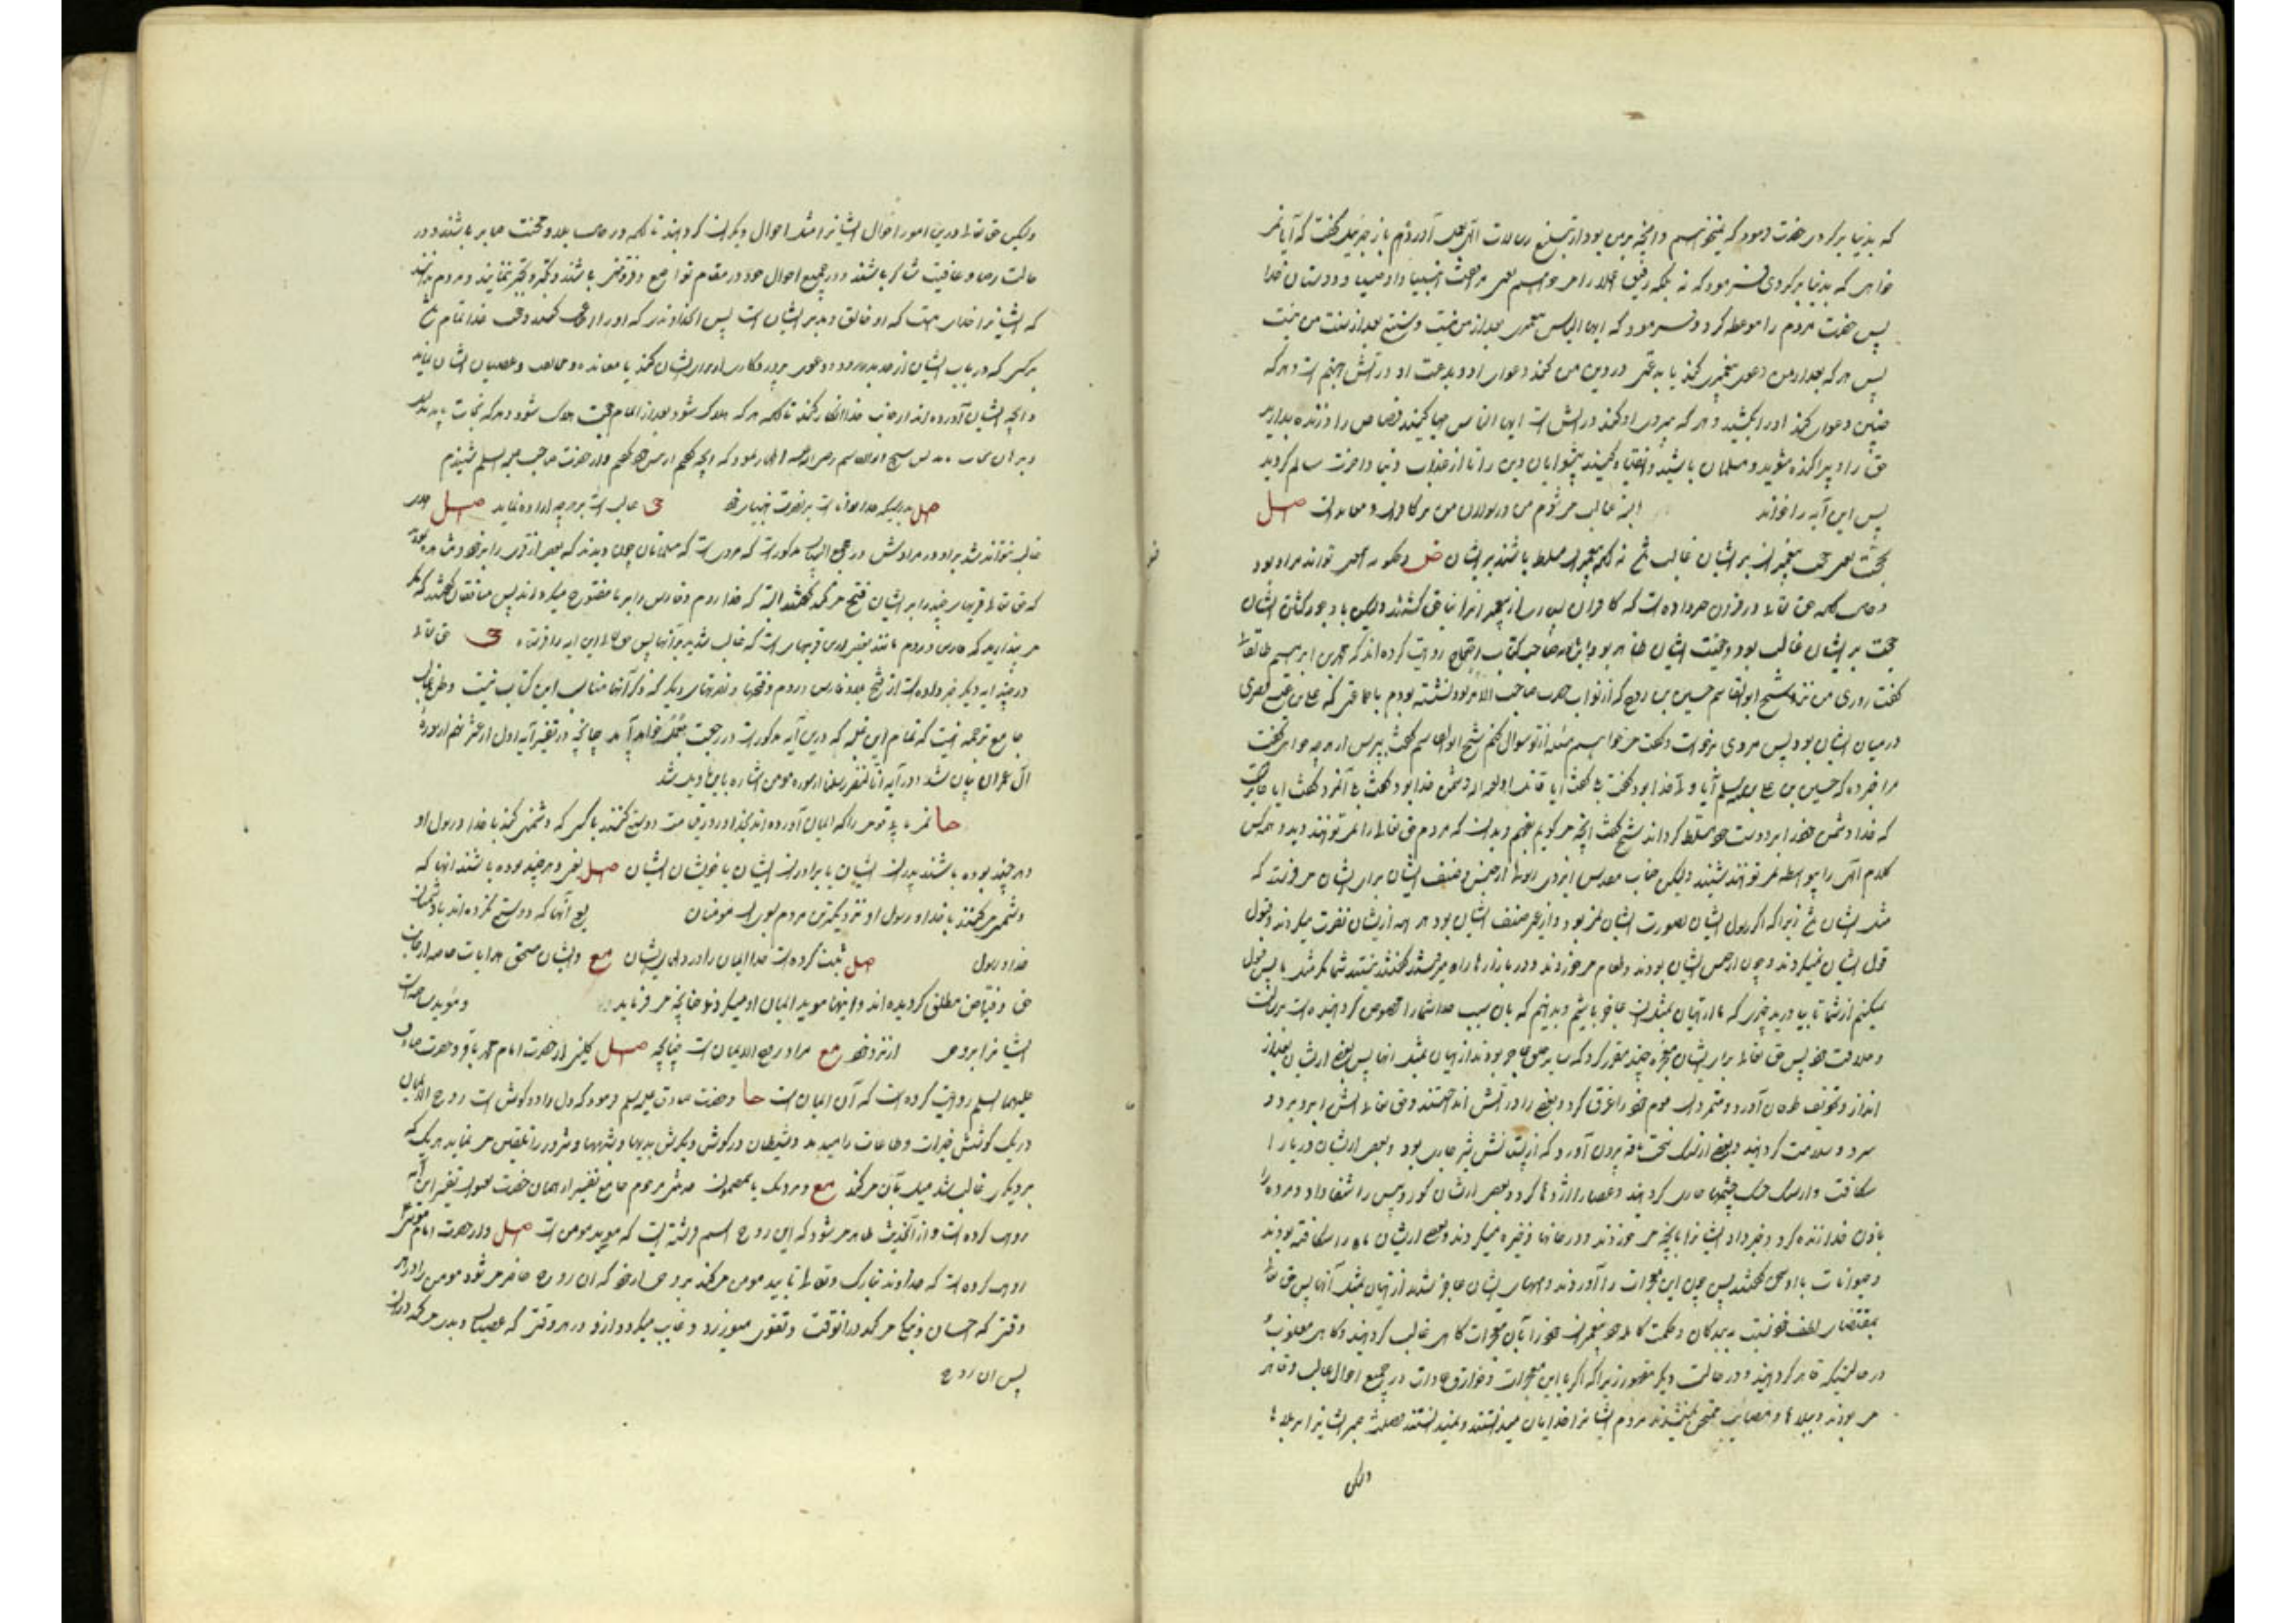 که بدنیا برگردی حضرت فرمود که نمیخواهم و آنچه بر من بود از تبلیغ رسالات الهی بجا آوردم باز جبرئیل گفت که آیا نمی
خواهی که بدنیا برگردی فرمود که نه بلکه رفیق اعلا را میخواهم یعنی مرافقت انبیا و اوصیا و دوستان خدا
پس حضرت مردم را موعظه کرد و فرمود که ایها الناس پیغمبری بعد از من نیست و سنتی بعد از سنت من نیست
پس هر که بعد از من دعوی پیغمبری کند یا بدعتی در دین من کند دعوای او و بدعت او در آتش جهنم است و هر که
چنین دعوای کند او را بکشید و هر که پیروی او کند در آتش است ایها الناس احیا کنید قصاص را و زنده بدارید
حق را و پراکنده مشوید و مسلمان باشید و انقیاد کنید پیشوایان دین را تا از عذاب دنیا و آخرت سالم گردید
پس این آیه را خواند البته غالب میشوم من و رسولان من بر کافران و معاندان صل
بحجت یعنی حجت پیغمبران بر ایشان غالب شد نه آنکه پیغمبران مسلط باشند بر ایشان ض و چگونه این تواند مراد بود
و حال آنکه حق تعالی در قرآن خبر داده است که کافران بسیار از پیغمبرانرا بناحق کشتند ولیکن با وجود کشتن ایشان
حجت بر ایشان غالب بود و حقیت ایشان ظاهر بود صاحب کتاب احتجاج روایت کرده اند که محمد بن ابرهیم طالقانی
گفت روزی من نزد شیخ ابوالقاسم حسین بن روح که از نواب حضرت صاحب الامر بود نشسته بودم با جماعتی که علی بن عیسی قصری
در میان ایشان بود پس مردی برخواست و گفت میخواهم مسئله از تو سوال کنم شیخ ابوالقاسم گفت بپرس از هر چه خواهی گفت
مرا خبر ده که حسین بن علی علیه السلم آیا ولی خدا بود گفت بلی گفت آیا قاتل او لعنه الله دشمن خدا بود گفت بلی آنمرد گفت آیا جایز است
که خدا دشمن خود را بر دوست خود مسلط گرداند شیخ گفت آنچه میگویم بفهم و بدان که مردم حق تعالی را نمی توانند دید و هر کس
کلام الهی را بیواسطه نمی توانند شنید ولیکن جناب مقدس ایزدی رسولها از جنس و صنف ایشان برای ایشان میفرستد که
مثل ایشان باشند زیرا که اگر رسول ایشان بصورت ایشان نمی بود و از غیر صنف ایشان بود هر آینه از ایشان نفرت میکردند و قبول
قول ایشان نمیکردند و چون از جنس ایشان بودند و طعام میخوردند و در بازارها راه میرفتند گفتند نیستید شما مگر مثل ما پس قبول
نمیکنیم از شما تا بیاورید چیزی که ما از اتیان بمثل آن عاجز باشیم و بدانیم که بان سبب خدا شما را مخصوص گردانیده است برسالت
و خلافت خود پس حق تعالی برای ایشان معجزه چند مقرر کرد که سایر خلق عاجز بودند از اتیان بمثل آنها پس بعضی از ایشان بعد از
انذار و تخویف طوفان آورد و متمردان قوم خود را غرق کرد و بعضی را در آتش انداختند و حق تعالی آتش را بر او برد و
سرد و سلامت گردانید و بعضی از سنگ سخت ناقه بیرون آورد که از پستانش شیر جاری بود و بعضی از ایشان دریا را
شکافت و از سنگ خشک چشمها جاری گردانید و عصا را اژدها کرد و بعضی از ایشان کور و پیس را شفا داد و مرده را
باذن خدا زنده کرد و خبر داد ایشانرا بآنچه میخوردند و در خانها ذخیره میکردند و بعضی از ایشان ماه را شکافته بودند
و حیوانات با او سخن گفتند پس چون این معجزات را آوردند و امتهای ایشان عاجز شدند از اتیان بمثل آنها پس حق تعالی
بمقتضای لطف خود نسبت به بندگان و حکمت کامله خود پیغمبران خود را با آن معجزات گاهی غالب گردانید و گاهی مغلوب
در حالتیکه قاهر گردانید و در حالت دیگر مقهور زیرا که اگر با این معجزات و خوارق عادات در جمیع احوال غالب و قاهر
می بودند و ببلاها و مصائب ممتحن نمیشدند مردم ایشانرا خدایان میدانستند و نمیدانستند فضیلت صبر ایشانرا بر بلاها
ولیکن
ولیکن حق تعالی درین امور احوال ایشانرا مثل احوال دیگران گردانید تا آنکه در حالت بلا و محنت صابر باشند و در
حالت رخا و عافیت شاکر باشند و در جمیع احوال خود در مقام تواضع و فروتنی باشند و تکبر و تجبر ننمایند و مردم بدانند
که ایشانرا خدایی هست که او خالق و مدبر ایشان است پس آن خداوند را که او را عبادت کنند و حجت خدا تمام شود
بر کسی که در باب ایشان از حد بدر رود و دعوی پروردگاری از برای ایشان کند یا معانده و مخالفت و عصیان ایشان نماید
و آنچه ایشان آورده اند از جانب خدا انکار کند تا آنکه هر که هلاک شود بعد از اتمام حجت هلاک شود و هر که نجات یابد بدلیل
و برهان نجات یابد پس شیخ ابوالقاسم رضی الله عنه فرمود که آنچه گفتم از پیش خود نگفتم و از حضرت صاحب علیه السلم شنیدم
صل بدرستیکه خدا تواناست بر نصرت انبیای خود ی غالب است بر هر چه اراده نماید صل
غالب نتواند شد بر او در مرادش در مجمع البیان مذکور است که مروی است که مسلمانان چون دیدند که بعضی از قری را بر خود مفتوح
که حق تعالی قریهای چند را بر ایشان فتح میکند گفتند البته که خدا روم و فارس را بر ما مفتوح میگرداند پس منافقان گفتند که مگر
می پندارید که فارس و روم مانند بعضی ازین قریهاست که غالب شدید بر آنها پس حق تعالی این آیه را فرستاد ی حق تعالی
در چند آیه دیگر خبر داده است از فتح بلاد فارس و روم و فتحها و نصرتهای دیگر که ذکر آنها مناسب این کتاب نیست
جامع ترجمه اینست که تمام این غلبه که درین آیه مذکور است در رجعت بعمل خواهد آمد چنانچه در تفسیر آیه اول از عشر نهم از سوره
آل عمران بیان شد و در آیه انا لننصر رسلنا از سوره مومن اشاره باین تاویل شد
حا نمی یابی قومی را که ایمان آورده اند بخدا و روز قیامت دوستی کنند با کسی که دشمنی کند با خدا و رسول او
و هر چند بوده باشند پدران ایشان یا برادران ایشان یا خویشان ایشان صل یعنی هر چند بوده باشند آنها که
دشمنی میکنند با خدا و رسول او نزدیکترین مردم بسوی مومنان یع آنها که دوستی نکرده اند با دشمنان
خدا و رسول صل ثبت کرده است خدا ایمان را در دلهای ایشان مع و ایشان مستحق هدایات خاصه از جانب
حق و فیاض مطلق گردیده اند و اینها موید ایمان او میگردند چنانچه میفرماید و موید ساخته است
ایشانرا بروحی از نزد خود مع مراد روح الایمان است چنانچه صل کلینی از حضرت امام محمد باقر و حضرت صادق
علیهما السلم روایت کرده است که آن ایمان است حا و حضرت صادق علیه السلم فرمود که دل را دو گوش است روح الایمان
در یک گوشش خیرات و طاعات را میدمد و شیطان در گوش دیگرش بدیها و شبهها و شرور را تلقین مینماید هر یک که
بر دیگری غالب شد میل بآن میکند مع و نزدیک باینمضمون علی بن ابرهیم جامع تفسیر از همان حضرت در تفسیر این آیه
روایت کرده است و از آنحدیث ظاهر میشود که این روح اسم فرشته ایست که موید مومن است صل و از حضرت امام موسی
روایت کرده است که خداوند تبارک و تعالی تایید مومن میکند بروحی از خود که آن روح حاضر میشود مومن را در هر
وقتی که احسان و نیکی میکند در آنوقت و تقوی میورزد و غایب میگردد از او در هر وقتی که عصیان و بدی میکند در آن
پس آن روح